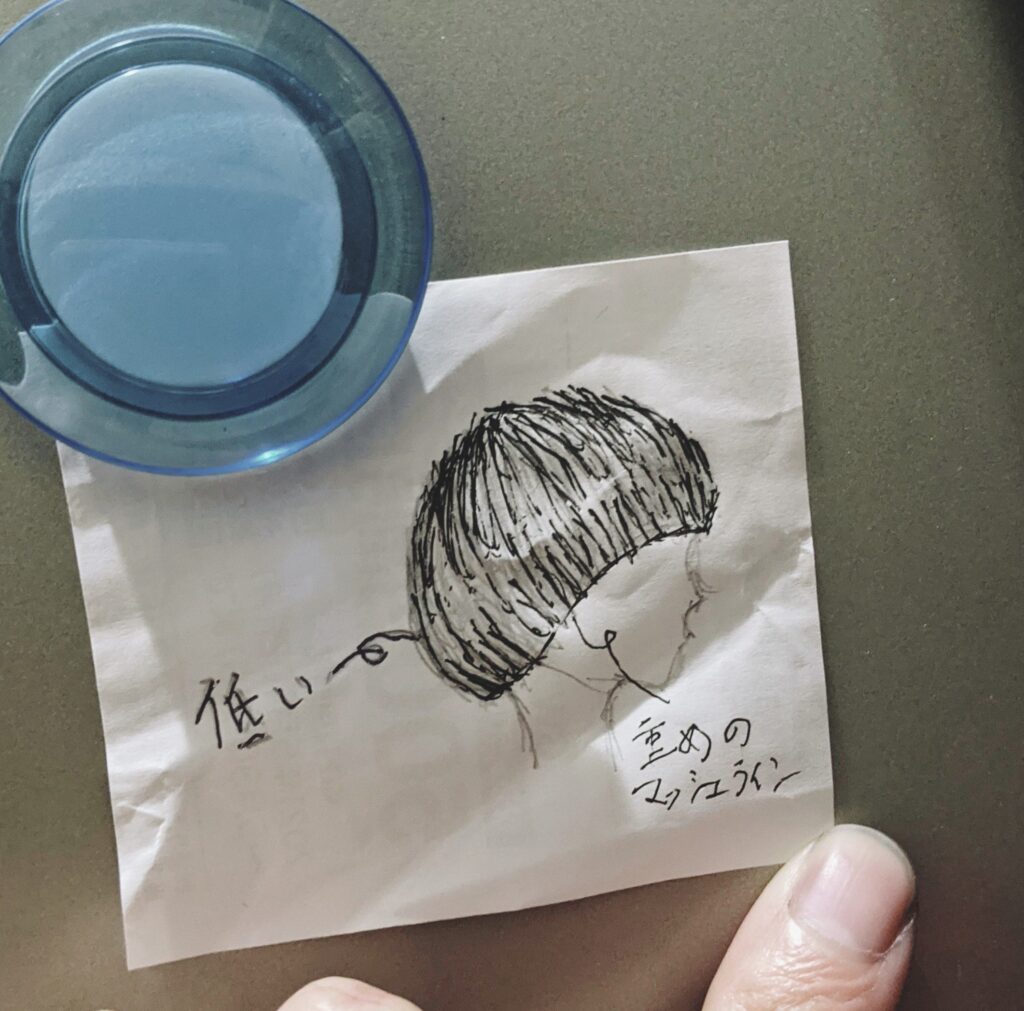 低い
重めの
マッシュライン